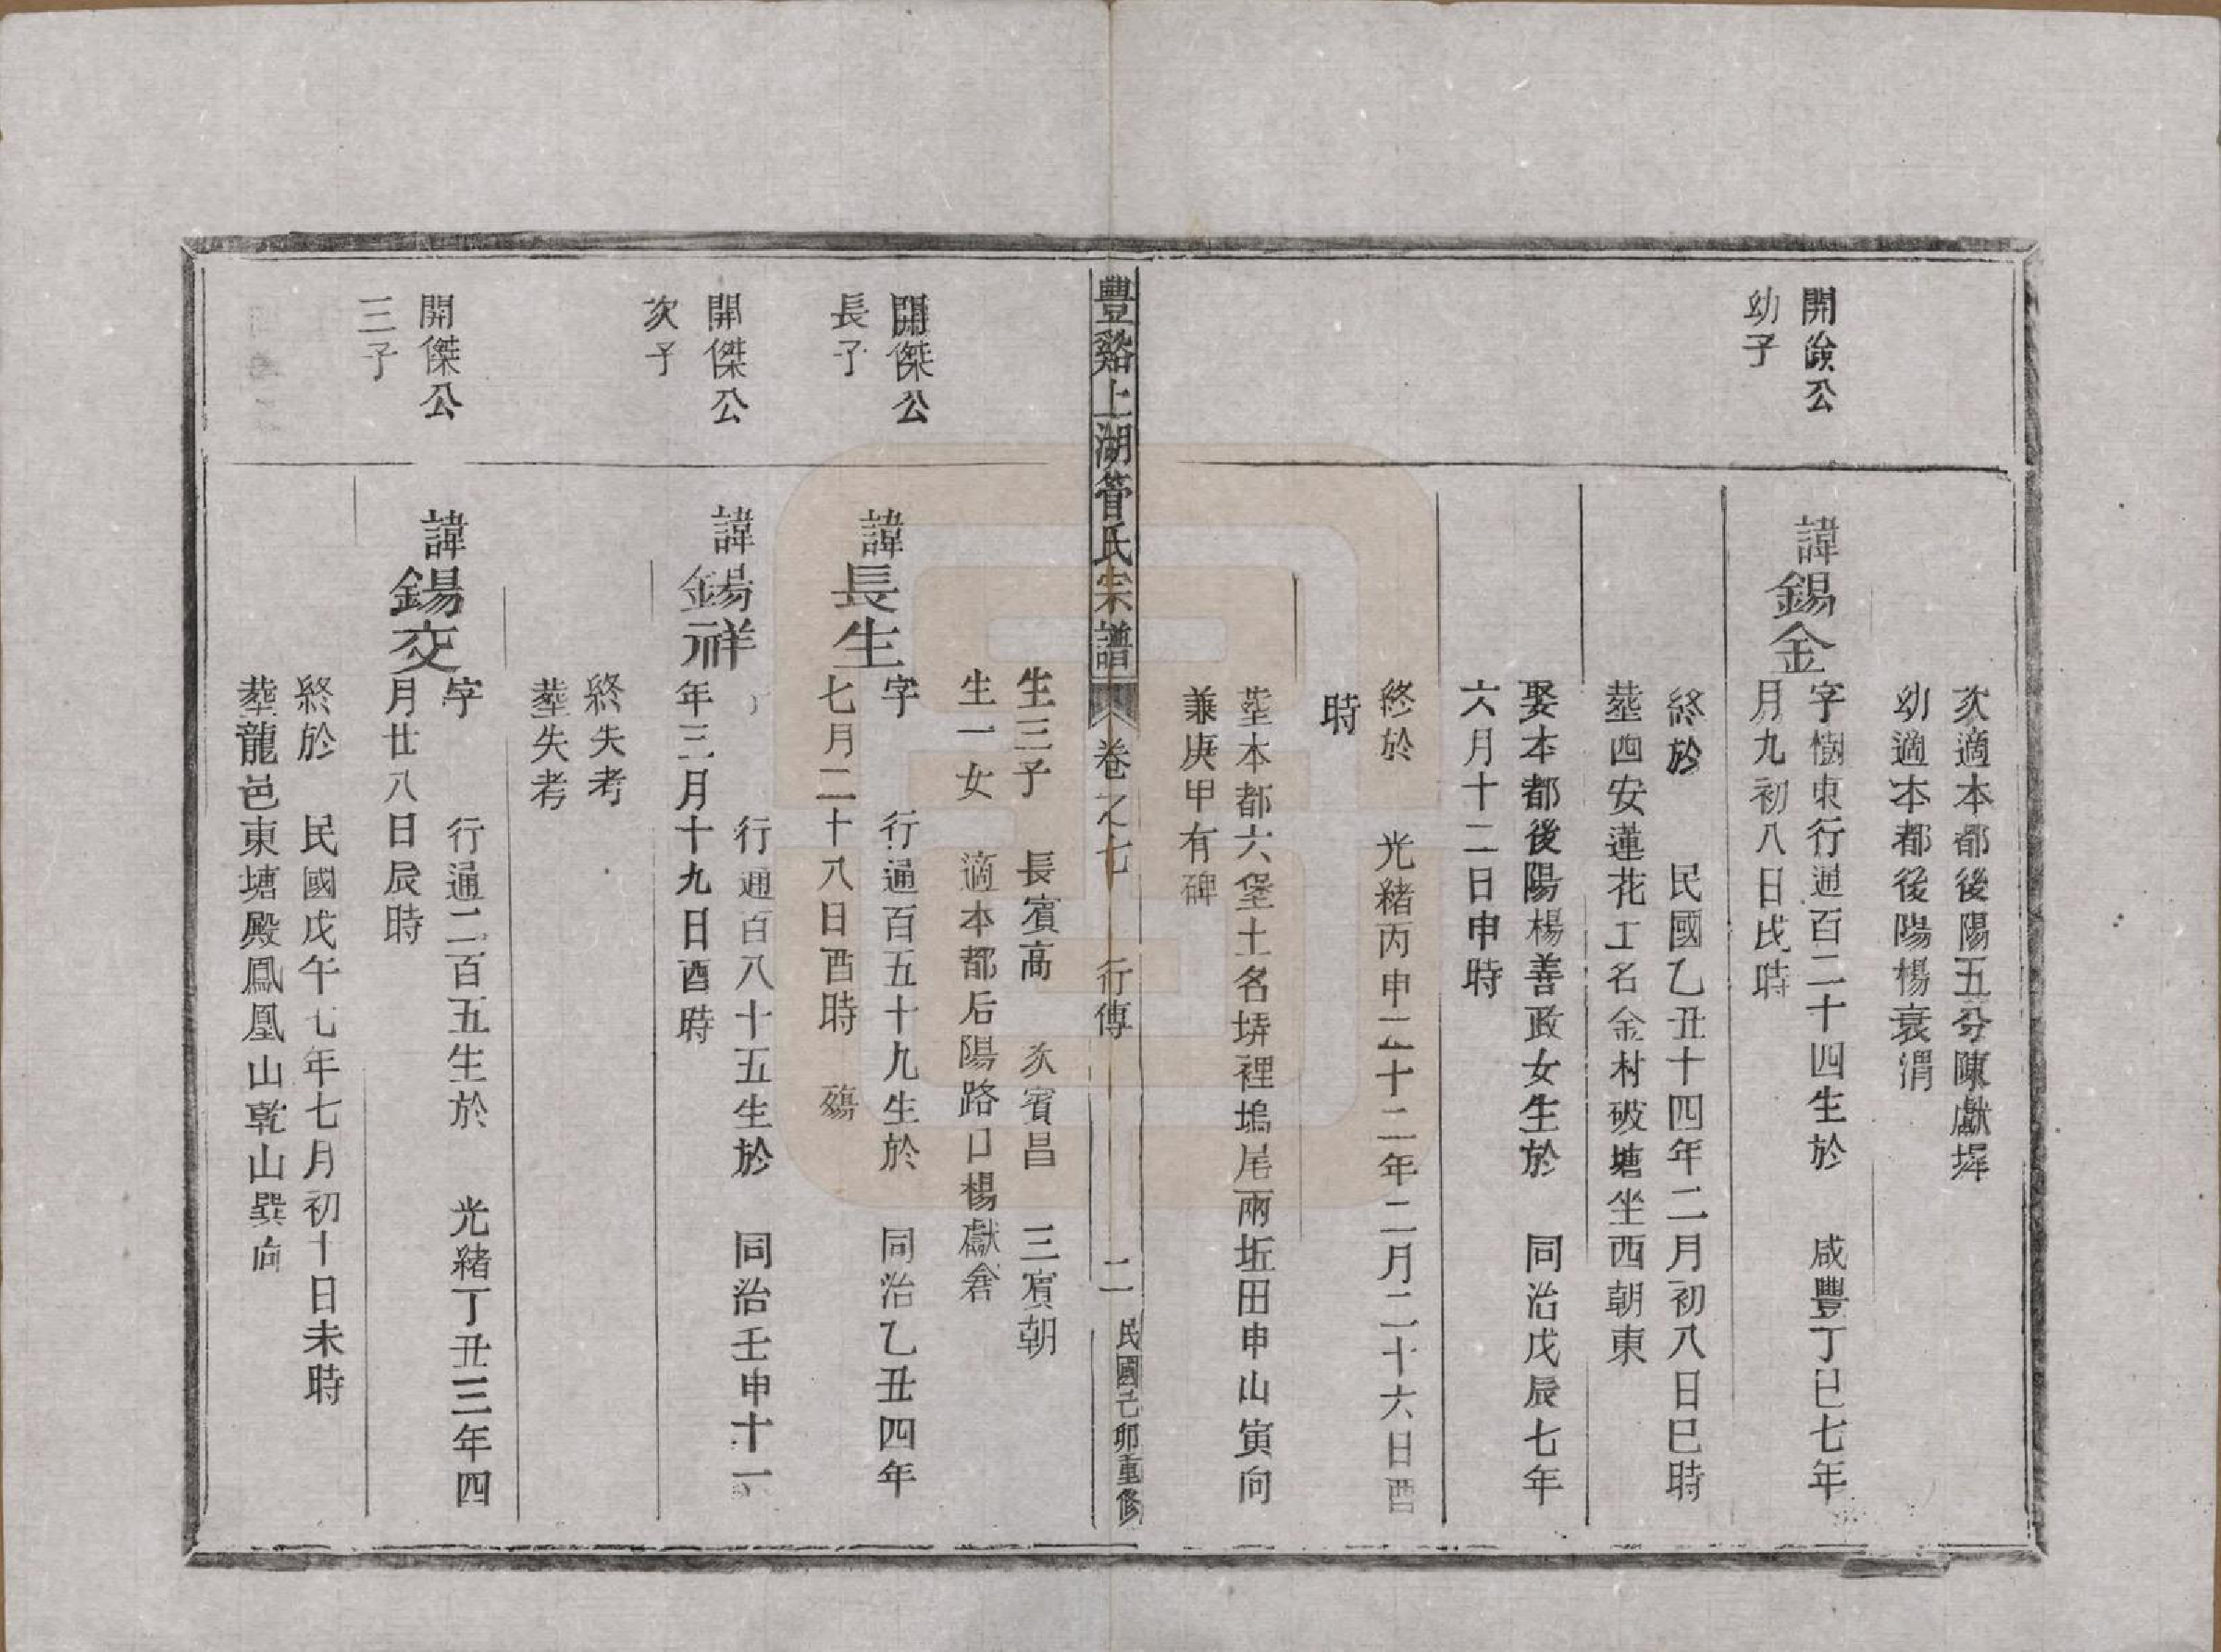 次適本都後陽五分陳獻墀
幼適本都後陽楊衰渭
開治公
幼子
諱錫金
字樹東行通百二十四生於 咸豐丁巳七年
月九初八日戌時
終於 民國乙丑十四年二月初八日巳時
塟四安蓮花工名金村破塘坐西朝東
娶本都後陽楊善政女生於 同治戊辰七年
六月十二日申時
終於 光緒丙申二十二年二月二十六日酉
時
塟本都六堡土名塝裡塢尾兩坵田申山寅向
兼庚甲有碑
豐谿上湖管氏宗譜 卷之七 行傳 二 民國己卯重修
生三子 長賓高 次賓昌 三賓朝
生一女 適本都后陽路口楊獻
開傑公
長子
諱長生
字 行通百五十九生於 同治乙丑四年
七月二十八日酉時 殤
開傑公
次子
諱錫祥
行通百八十五生於 同治壬申十一
年三月十九日酉時
終失考
塟失考
開傑公
三子
諱錫交
字 行通二百五生於 光緒丁丑三年四
月廿八日辰時
終於 民國戊午七年七月初十日未時
塟龍邑東塘殿鳳凰山乾山巽向